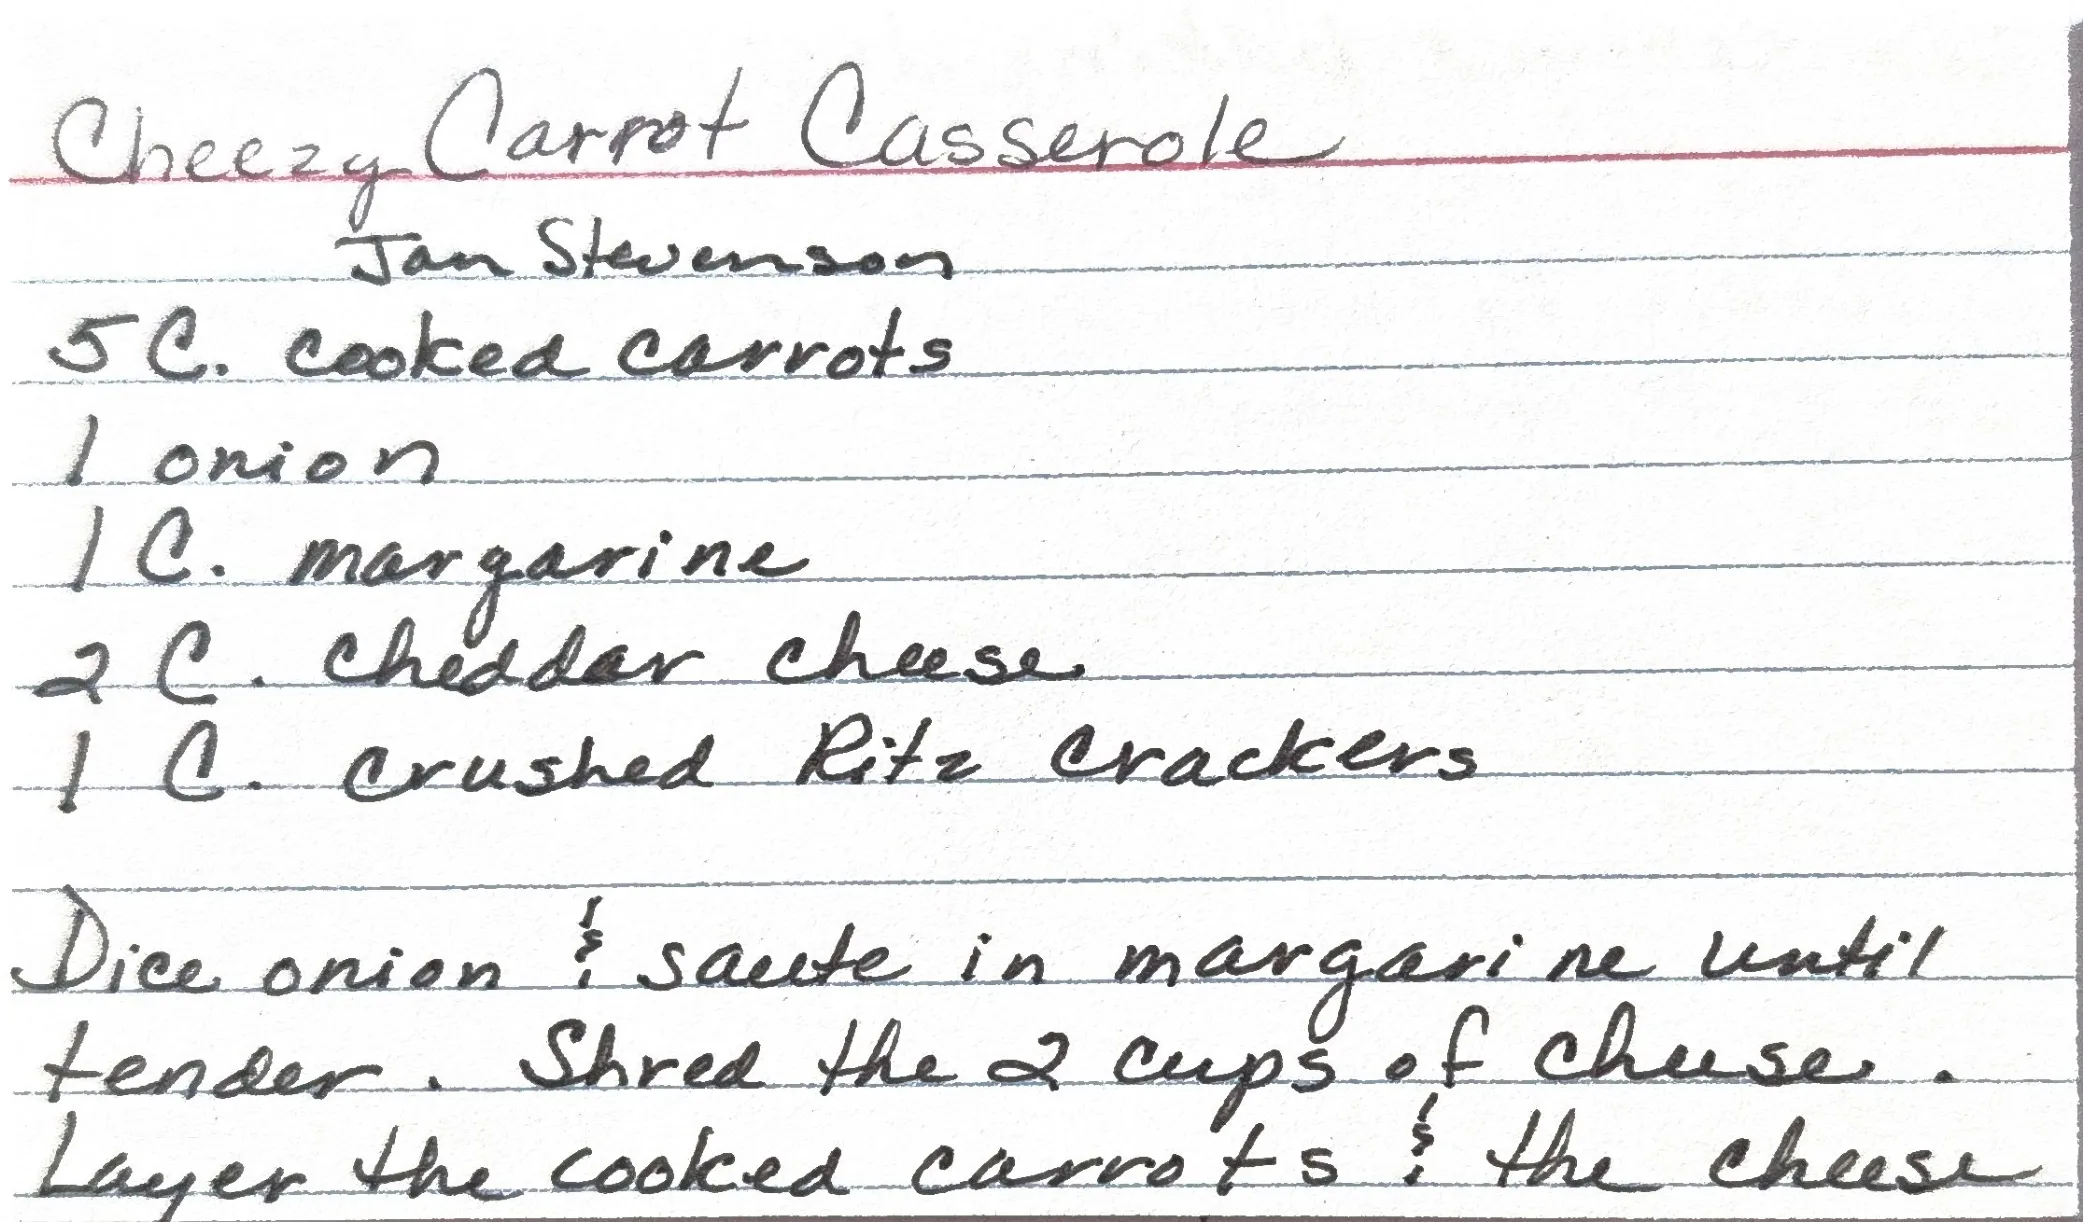 Cheezy Carrot Casserole
Jan Stevenson
5 C. cooked carrots
1 onion
1 C. margarine
2 C. cheddar cheese
1 C. crushed Ritz crackers
Dice onion & saute in margarine until
tender. Shred the 2 cups of cheese.
Layer the cooked carrots & the cheese